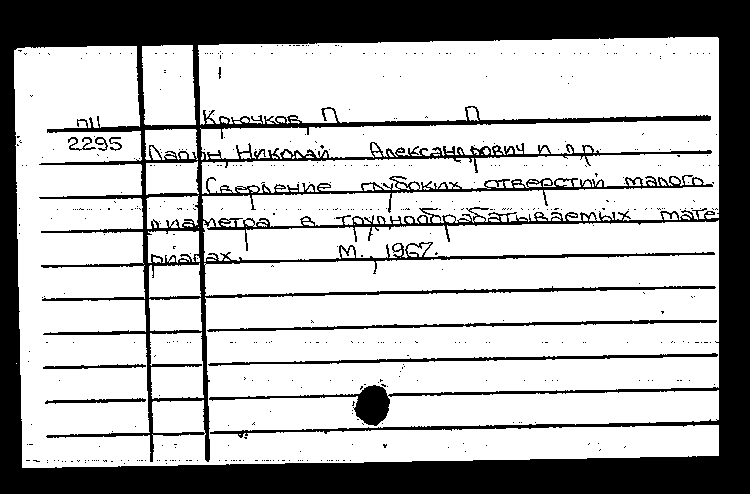 П11 Крючков, П. П.
2295
Лапин, Николай Александрович и др.
Сверление глубоких отверстий малого
диаметра в труднообрабатываемых мате
риалах. М., 1967.